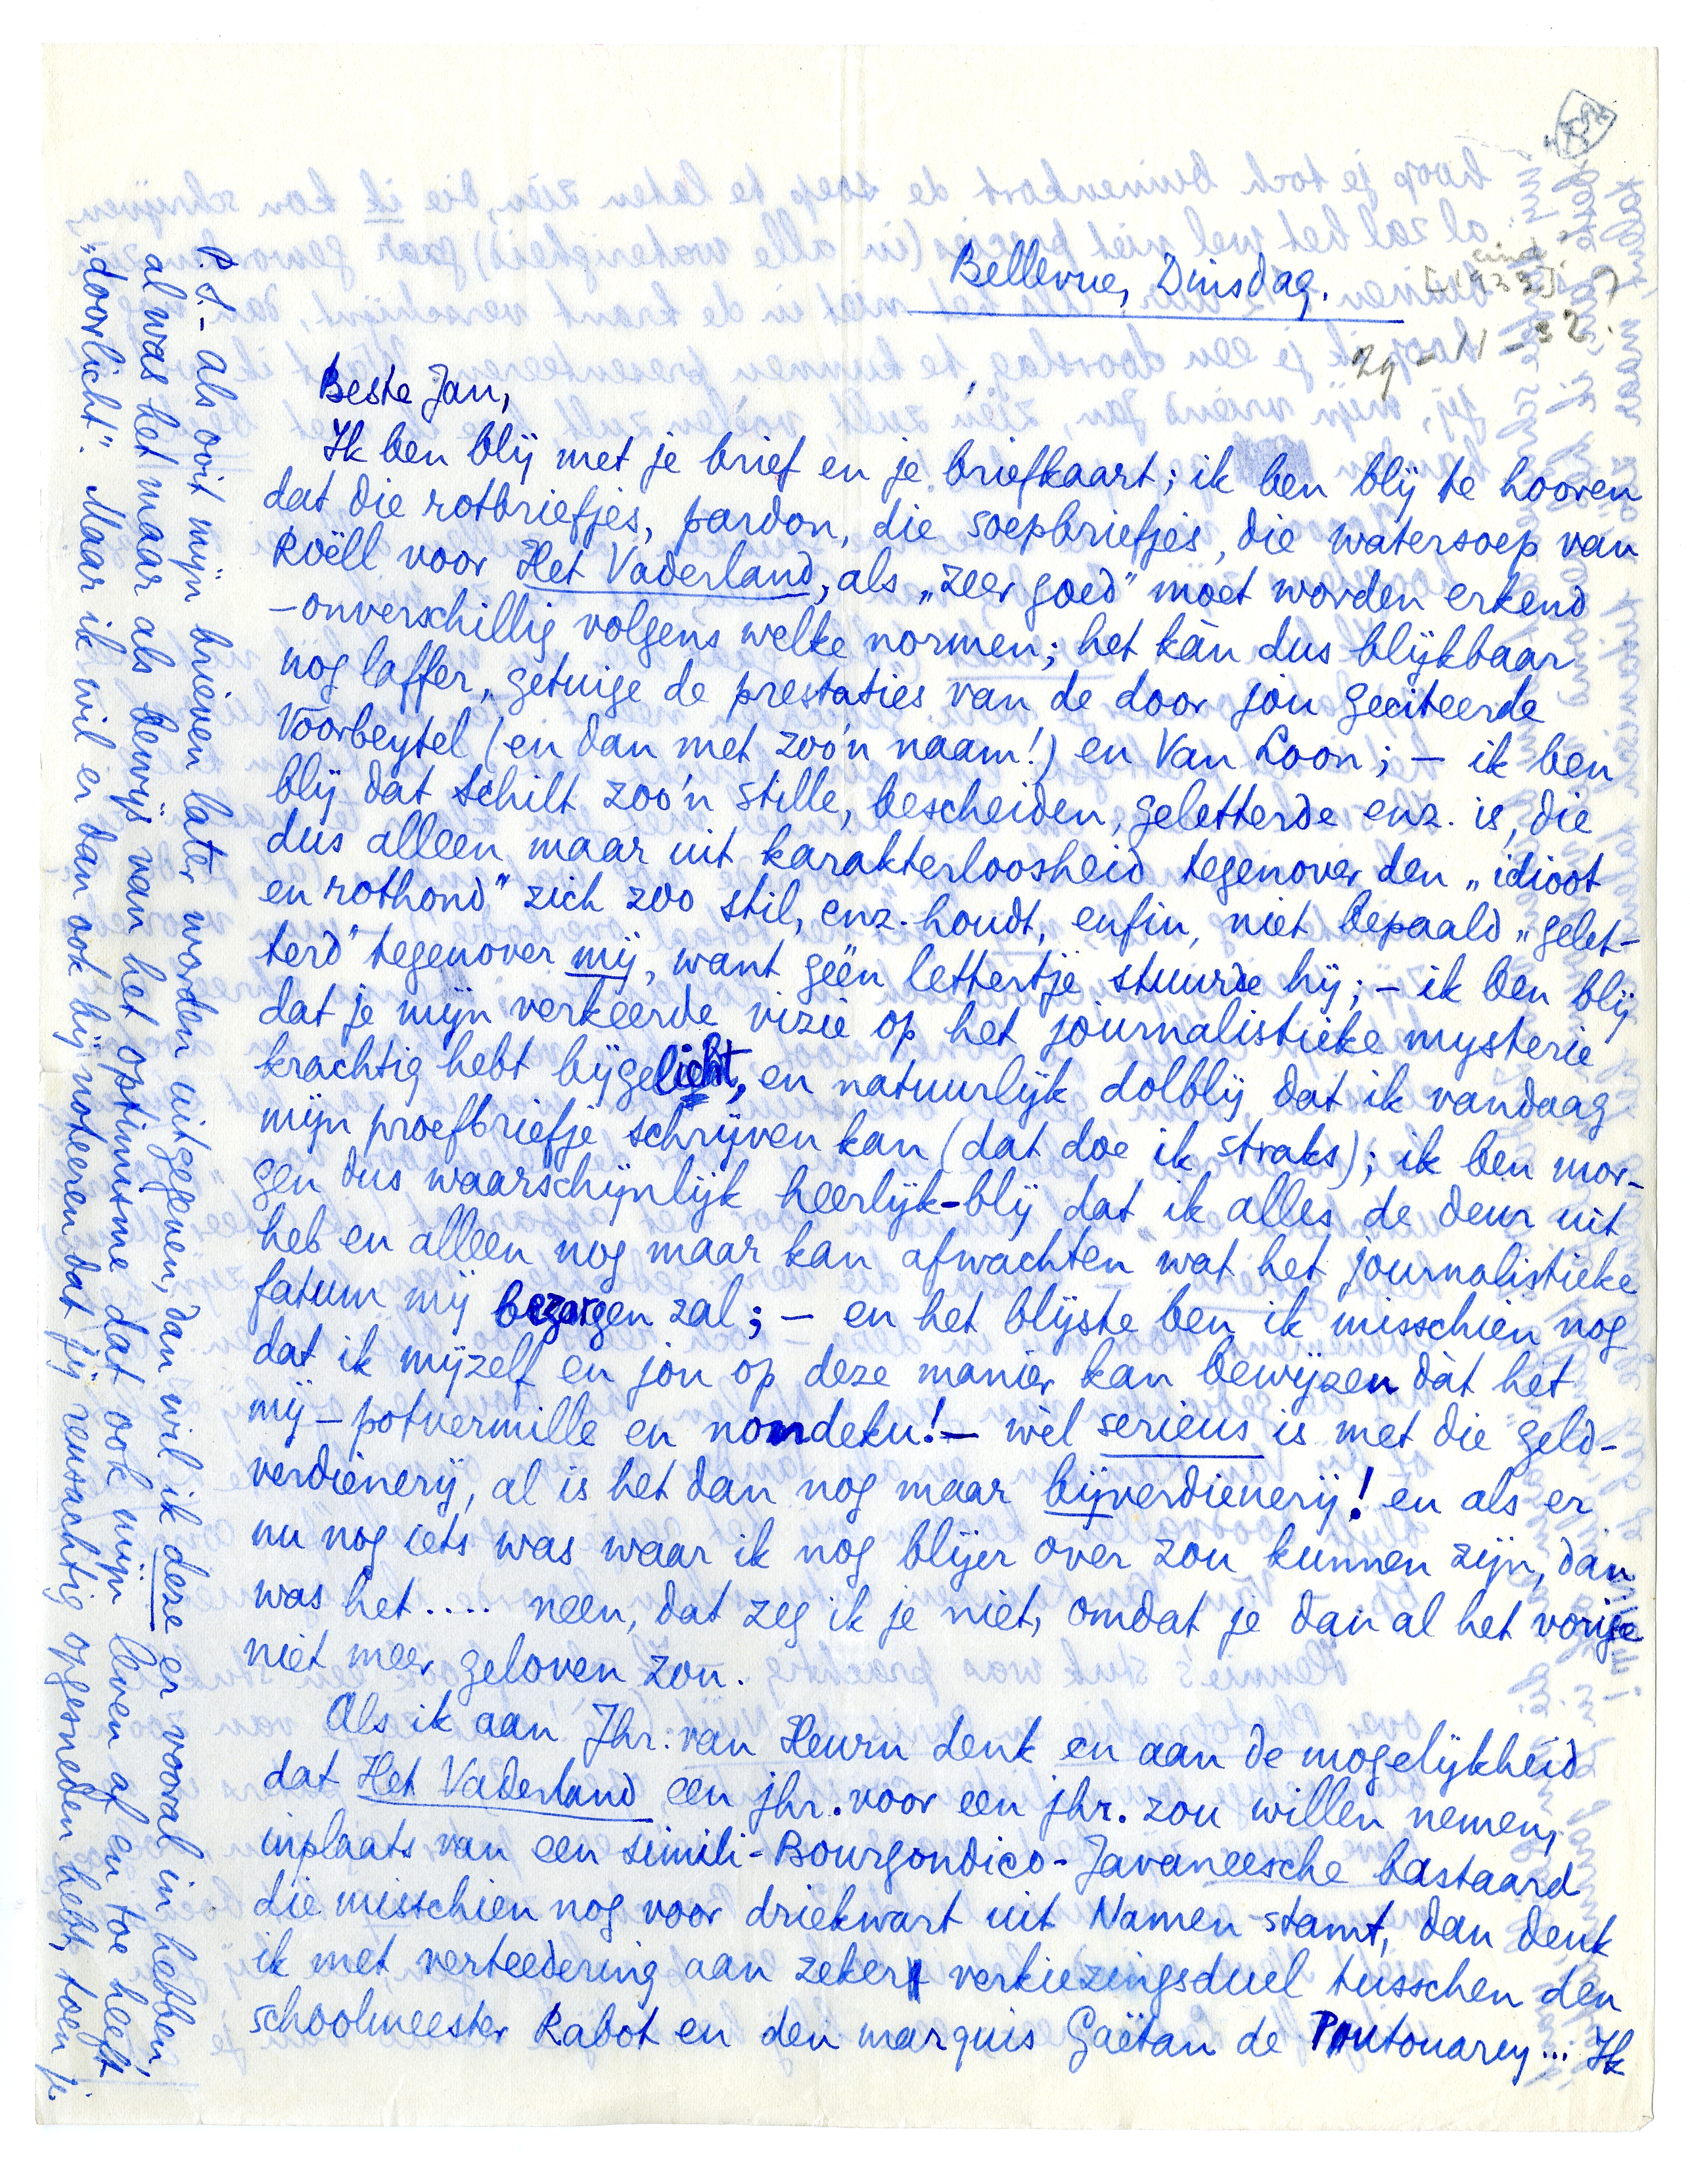 Bellevue, Dinsdag.
eind?
[1933]?
29-11-32.
Beste Jan,
Ik ben blij met je brief en je briefkaart; ik ben blij te hooren
dat die rotbriefjes, pardon, die soepbriefjes, die watersoep van
Roëll voor Het Vaderland, als „zeer goed" moet worden erkend
– onverschillig volgens welke normen; het kàn dus blijkbaar
nog laffer, getuige de prestaties van de door jou geciteerde
Voorbeytel (en dan met zoo'n naam!) en Van Loon; – ik ben
blij dat Schilt zoo'n stille, bescheiden, geletterde enz. is, die
dus alleen maar uit karakterloosheid tegenover den „idioot
en rothond" zich zoo stil, enz. houdt, enfin, niet bepaald „gelet-
terd" tegenover mij, want geën lettertje stuurde hij; – ik ben blij
dat je mijn verkeerde vizie op het journalistieke mysterie
krachtig hebt bijgelicht, en natuurlijk dolblij dat ik vandaag
mijn proefbriefje schrijven kan (dat doe ik straks); ik ben mor-
gen dus waarschijnlijk heerlijk-blij dat ik alles de deur uit
heb en alleen nog maar kan afwachten wat het journalistieke
fatum mij bezorgen zal; – en het blijste ben ik misschien nog
dat ik mijzelf en jou op deze manier kan bewijzen dàt het
mij – potvermille en nondeku! – wèl serieus is met die geld-
verdienerij, al is het dan nog maar bijverdienerij! en als er
nu nog iets was waar ik nog blijer over zou kunnen zijn, dan
was het .... neen, dat zeg ik je niet, omdat je dan al het vorige
niet meer gelooven zou.
Als ik aan Jhr. van Heurn denk en aan de mogelijkheid
dat Het Vaderland een jhr. voor een jhr. zou willen nemen,
inplaats van een simili-Bourgondico-Javaneesche bastaard
die misschien nog voor driekwart uit Namen stamt, dan denk
ik met verteedering aan zeker verkiezingsduel tusschen den
schoolmeester Rabot en den marquis Gaëtan de Putouarey... Ik
P.S.– Als ooit mijn brieven later worden uitgegeven, dan wil ik deze er vooral in hebben,
al was het maar als bewijs van het optimisme dat ook mijn leven af en toe heeft
„doorlicht". Maar ik wil er dan ook bij noteeren dat jij reusachtig opgesneden hebt, toen je